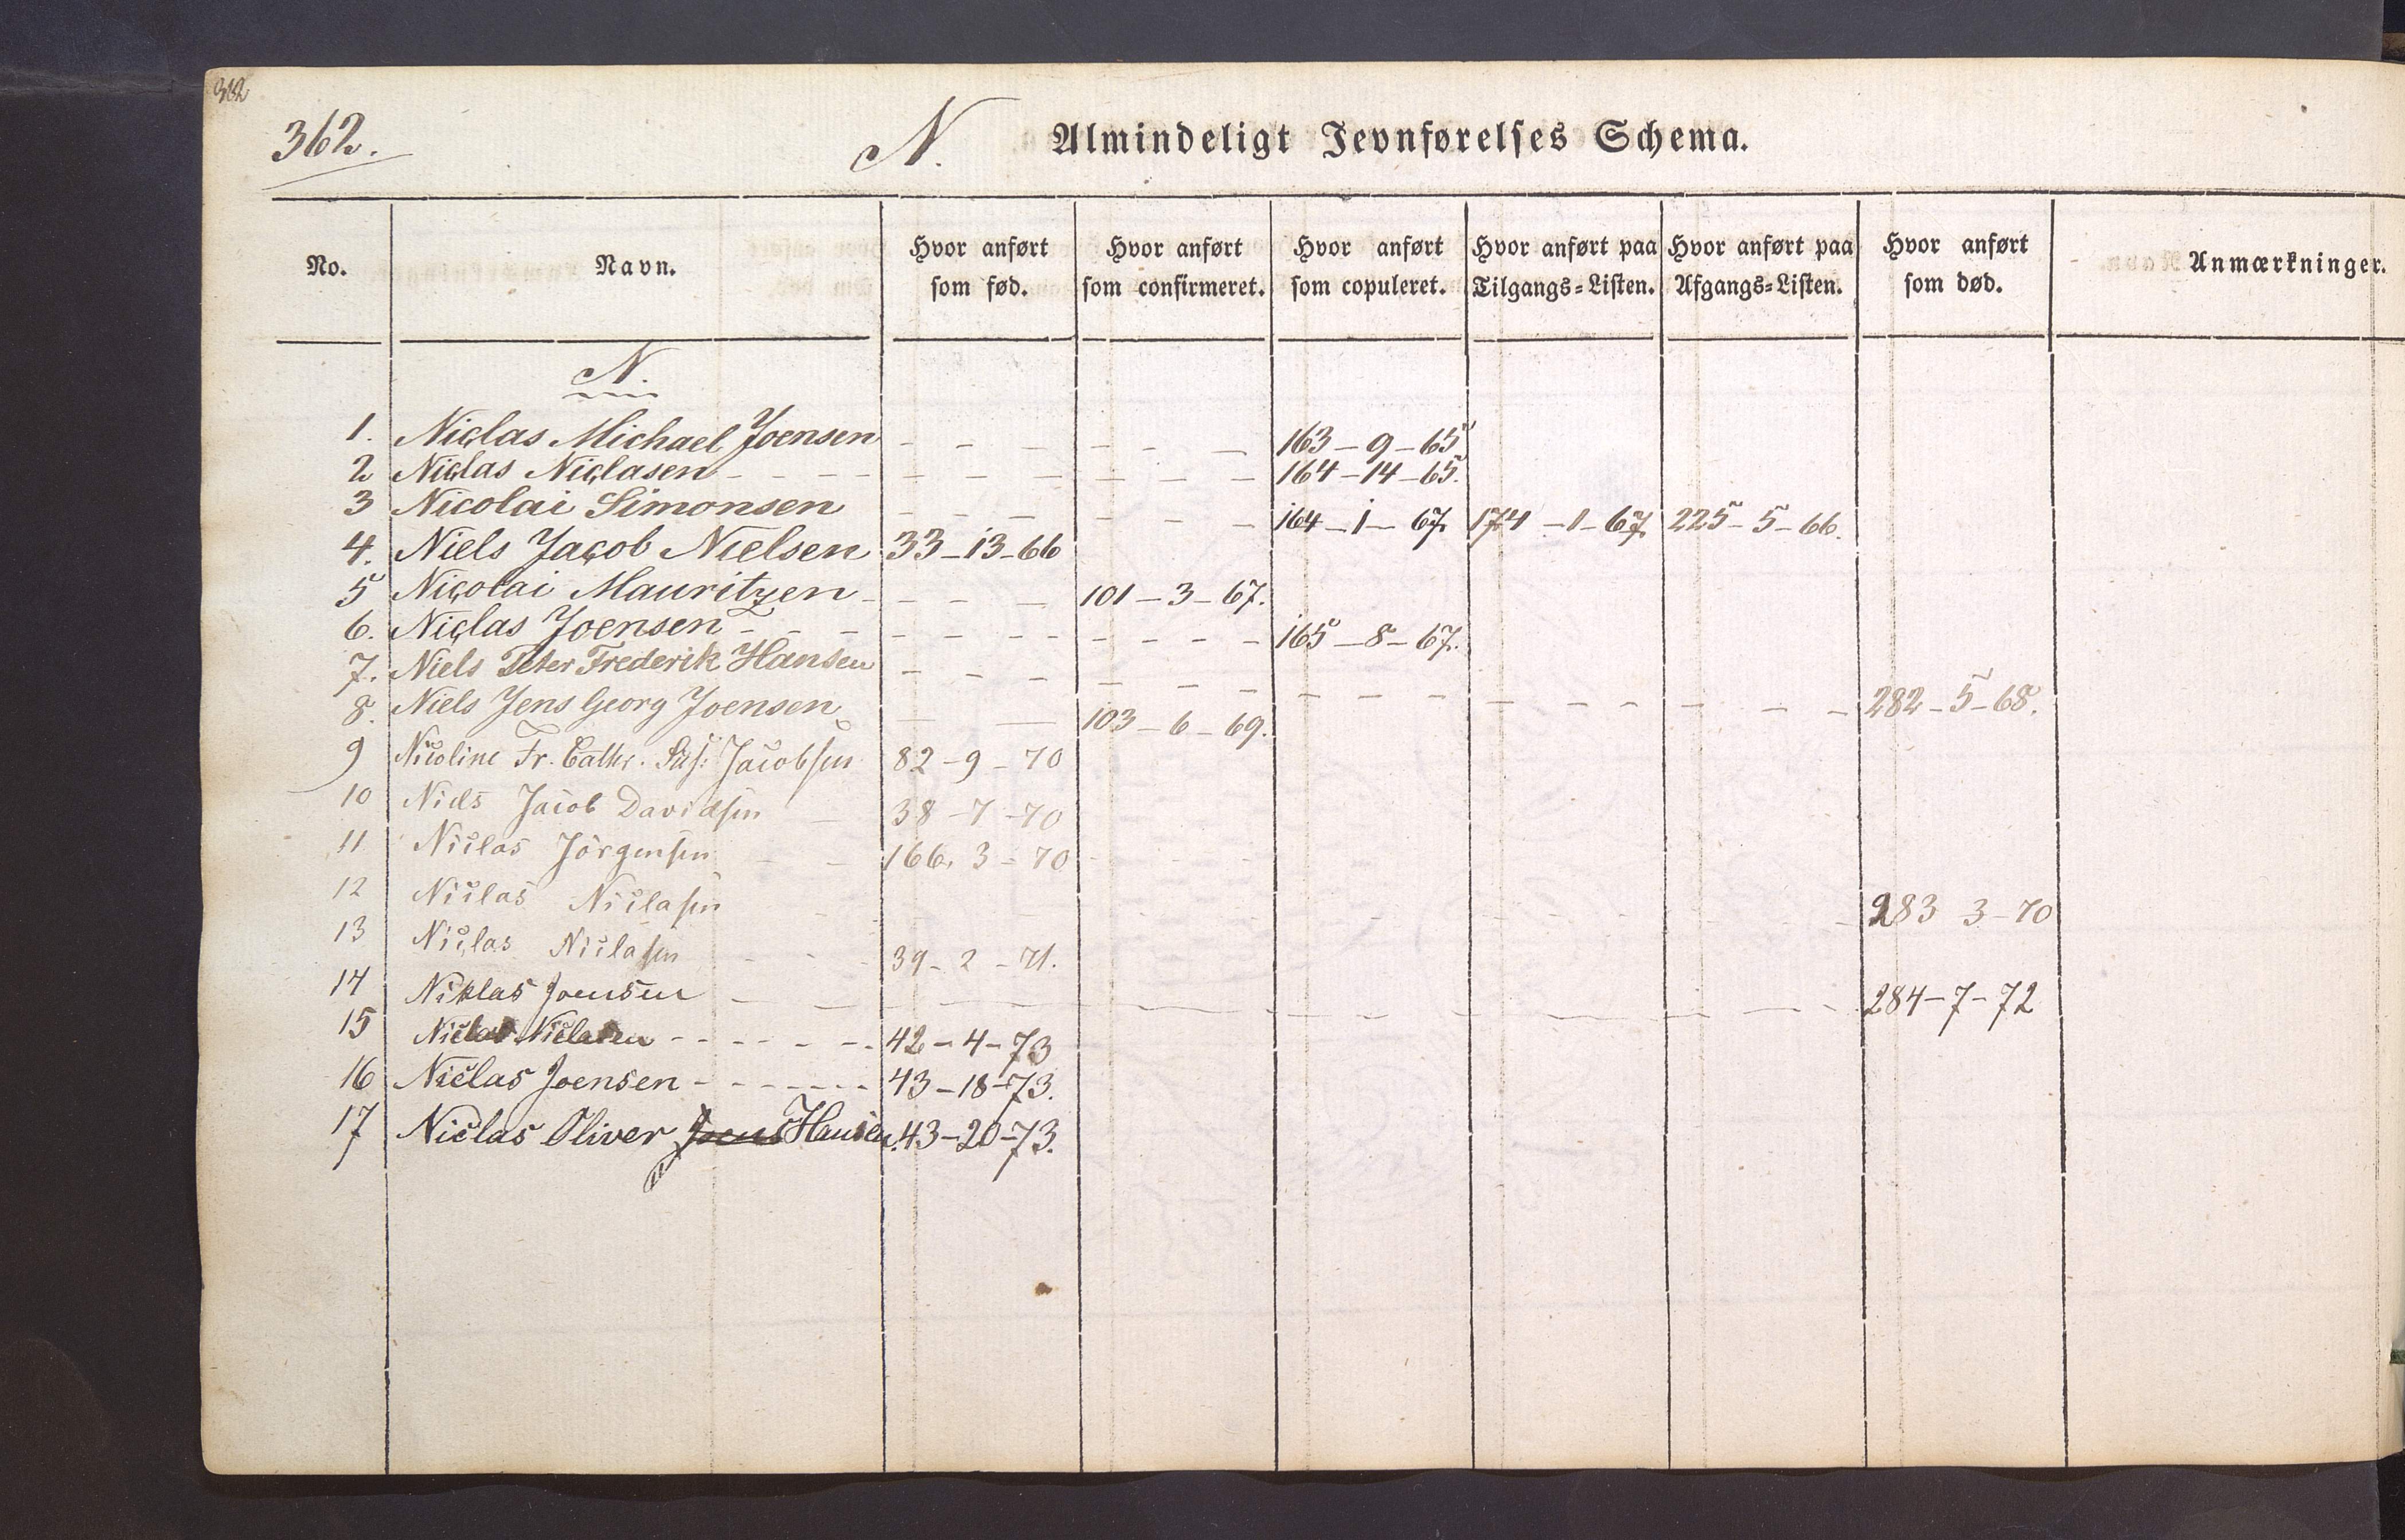 362
362.
N. Almindeligt Jevnførelses Schema.
No. Navn. Hvor anført som fød. Hvor anført som confirmeret. Hvor anført som copuleret. Hvor anført paa Tilgangs-Listen. Hvor anført paa Afgangs-Listen. Hvor anført som død. Anmærkninger.
N.
1. Niclas Michael Joensen - - - - - - 163-9-65
2 Niclas Niclasen - - - - - - - - - - 164-14-65.
3 Nicolai Simonsen - - - - - - 164-1-67. 174-1-67. 225-5-66.
4. Niels Jacob Nielsen 33-13-66
5 Nicolai Mauritzen - - - - 101-3-67.
6. Niclas Joensen - - - - - - - - - - - 165-8-67.
7. Niels Peter Frederik Hansen - - - - - - - - - - - - - - - 282-5-68.
8. Niels Jens Georg Joensen - - 103-6-69.
9 Nicoline Fr. Cathr. Sus: Jacobsen 82-9-70
10 Niels Jacob Davidsen - 38-7-70
11 Niclas Jörgensen - - 166. 3-70 - - -
12 Niclas Niclasen - - - - - - - - - 283 3-70
13 Niclas Niclasen - - - 39-2-71.
14 Niklas Joensen - - - - - - - - - - - - 284-7-72
15 Niclas Niclasen - - - - - - - 42-4-73
16 Niclas Joensen - - - - - - - 43-18-73.
17 Niclas Oliver Joens Hansen. 43-20-73.